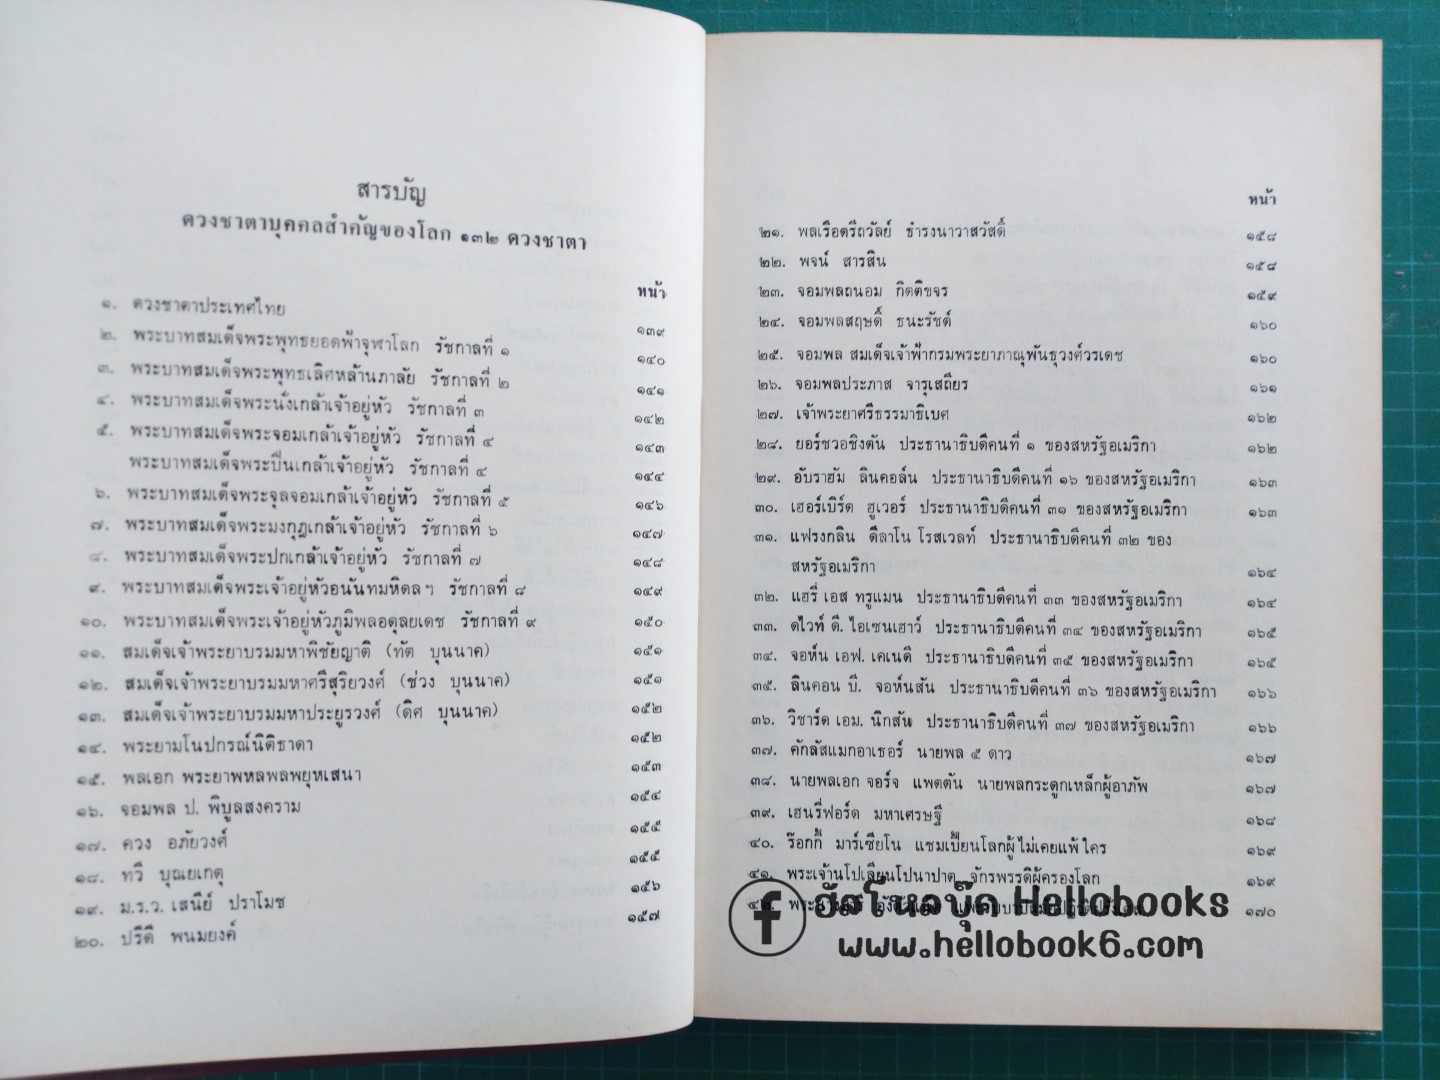 สารบัญ
ดวงชาตาบุคคลสำคัญของโลก ๑๓๒ ดวงชาตา
หน้า
๑. ดวงชาตาประเทศไทย ๑๓๙
๒. พระบาทสมเด็จพระพุทธยอดฟ้าจุฬาโลก รัชกาลที่ ๑ ๑๔๐
๓. พระบาทสมเด็จพระพุทธเลิศหล้านภาลัย รัชกาลที่ ๒ ๑๔๑
๔. พระบาทสมเด็จพระนั่งเกล้าเจ้าอยู่หัว รัชกาลที่ ๓ ๑๔๒
๕. พระบาทสมเด็จพระจอมเกล้าเจ้าอยู่หัว รัชกาลที่ ๔ ๑๔๓
พระบาทสมเด็จพระปิ่นเกล้าเจ้าอยู่หัว รัชกาลที่ ๔ ๑๔๔
๖. พระบาทสมเด็จพระจุลจอมเกล้าเจ้าอยู่หัว รัชกาลที่ ๕ ๑๔๖
๗. พระบาทสมเด็จพระมงกุฎเกล้าเจ้าอยู่หัว รัชกาลที่ ๖ ๑๔๗
๘. พระบาทสมเด็จพระปกเกล้าเจ้าอยู่หัว รัชกาลที่ ๗ ๑๔๘
๙. พระบาทสมเด็จพระเจ้าอยู่หัวอนันทมหิดลฯ รัชกาลที่ ๘ ๑๔๙
๑๐. พระบาทสมเด็จพระเจ้าอยู่หัวภูมิพลอดุลยเดช รัชกาลที่ ๙ ๑๕๐
๑๑. สมเด็จเจ้าพระยาบรมมหาพิชัยญาติ (ทัต บุนนาค) ๑๕๑
๑๒. สมเด็จเจ้าพระยาบรมมหาศรีสุริยวงศ์ (ช่วง บุนนาค) ๑๕๑
๑๓. สมเด็จเจ้าพระยาบรมมหาประยูรวงศ์ (ดิศ บุนนาค) ๑๕๒
๑๔. พระยามโนปกรณ์นิติธาดา ๑๕๒
๑๕. พลเอก พระยาพหลพลพยุหเสนา ๑๕๓
๑๖. จอมพล ป. พิบูลสงคราม ๑๕๔
๑๗. ควง อภัยวงศ์ ๑๕๕
๑๘. ทวี บุณยเกตุ ๑๕๕
๑๙. ม.ร.ว. เสนีย์ ปราโมช ๑๕๖
๒๐. ปรีดี พนมยงค์ ๑๕๗
หน้า
๒๑. พลเรือตรีถวัลย์ ธำรงนาวาสวัสดิ์ ๑๕๘
๒๒. พจน์ สารสิน ๑๕๘
๒๓. จอมพลถนอม กิตติขจร ๑๕๙
๒๔. จอมพลสฤษดิ์ ธนะรัชต์ ๑๖๐
๒๕. จอมพล สมเด็จเจ้าฟ้ากรมพระยาภาณุพันธุวงศ์วรเดช ๑๖๐
๒๖. จอมพลประภาส จารุเสถียร ๑๖๑
๒๗. เจ้าพระยาศรีธรรมาธิเบศ ๑๖๒
๒๘. ยอร์ชวอชิงตัน ประธานาธิบดีคนที่ ๑ ของสหรัฐอเมริกา ๑๖๒
๒๙. อับราฮัม ลินคอล์น ประธานาธิบดีคนที่ ๑๖ ของสหรัฐอเมริกา ๑๖๓
๓๐. เฮอร์เบิร์ต ฮูเวอร์ ประธานาธิบดีคนที่ ๓๑ ของสหรัฐอเมริกา ๑๖๓
๓๑. แฟรงกลิน ดีลาโน โรสเวลท์ ประธานาธิบดีคนที่ ๓๒ ของ
สหรัฐอเมริกา ๑๖๔
๓๒. แฮรี่ เอส ทรูแมน ประธานาธิบดีคนที่ ๓๓ ของสหรัฐอเมริกา ๑๖๔
๓๓. ดไวท์ ดี. ไอเซนเฮาว์ ประธานาธิบดีคนที่ ๓๔ ของสหรัฐอเมริกา ๑๖๕
๓๔. จอห์น เอฟ. เคเนดี ประธานาธิบดีคนที่ ๓๕ ของสหรัฐอเมริกา ๑๖๕
๓๕. ลินคอน บี. จอห์นสัน ประธานาธิบดีคนที่ ๓๖ ของสหรัฐอเมริกา ๑๖๖
๓๖. วิชาร์ด เอม. นิกสัน ประธานาธิบดีคนที่ ๓๗ ของสหรัฐอเมริกา ๑๖๖
๓๗. คักลัสแมกอาเธอร์ นายพล ๕ ดาว ๑๖๗
๓๘. นายพลเอก จอร์จ แพตตัน นายพลกระดูกเหล็กผู้อาภัพ ๑๖๗
๓๙. เฮนรี่ฟอร์ด มหาเศรษฐี ๑๖๘
๔๐. ร๊อกกี้ มาร์เซียโน แชมเปี้ยนโลกผู้ไม่เคยแพ้ใคร ๑๖๙
๔๑. พระเจ้านโปเลียนโปนาปาต จักรพรรดิผู้ครองโลก ๑๖๙
๔๒. ๑๗๐
ฮัลโหลบุ๊ค Hellobooks
www.hellobook6.com